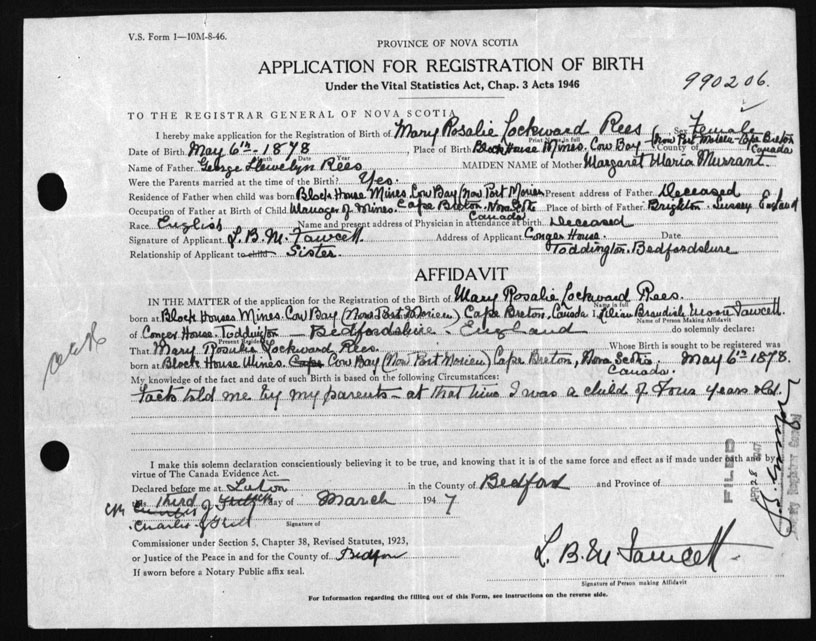 V.S. Form 1—10M-8-46.
PROVINCE OF NOVA SCOTIA
APPLICATION FOR REGISTRATION OF BIRTH
Under the Vital Statistics Act, Chap. 3 Acts 1946
990206.
TO THE REGISTRAR GENERAL OF NOVA SCOTIA
I hereby make application for the Registration of Birth of Mary Rosalie Lockward Rees Sex Female
Print Name in full
Date of Birth May 6th - 1878 Place of Birth Block House Mines. Cow Bay County of (Now Port Morien - Cape Breton Canada
Month Date Year
Name of Father George Llewelyn Rees MAIDEN NAME of Mother Margaret Maria Murrant.
Were the Parents married at the time of the Birth? Yes.
Residence of Father when child was born Block House Mines. Cow Bay (Now Port Morien Present address of Father Deceased
Occupation of Father at Birth of Child Manager of Mines. Cape Breton. Nova Scotia Canada Place of birth of Father Brighton. Sussex England
Race English Name and present address of Physician in attendance at birth Deceased
Signature of Applicant L. B. M. Fawcett. Address of Applicant Conger House. Date
Relationship of Applicant to child Sister. Toddington. Bedfordshire
AFFIDAVIT
IN THE MATTER of the application for the Registration of the Birth of Mary Rosalie Lockward Rees.
Name in full
born at Block Houses Mines. Cow Bay (Now Port Morien) Cape Breton, Canada I, Lilian Moore Fawcett.
Name of Person Making Affidavit
of Conger House Toddington - Bedfordshire - England do solemnly declare:
Present Residence
That Mary Rosalie Lockward Rees. Whose Birth is sought to be registered was
born at Block House Mines. Cape Cow Bay (Now Port Morien) Cape Breton, Nova Scotia. Canada. May 6th 1878.
My knowledge of the fact and date of such Birth is based on the following Circumstances:
Facts told me by my parents - at that time I was a child of Four years old.
I make this solemn declaration conscientiously believing it to be true, and knowing that it is of the same force and effect as if made under oath and by
virtue of The Canada Evidence Act.
Declared before me at Luton in the County of Bedford and Province of
third day of March 1947
Signature of
Commissioner under Section 5, Chapter 38, Revised Statutes, 1923,
or Justice of the Peace in and for the County of Bedford
If sworn before a Notary Public affix seal.
L. B. M Fawcett
Signature of Person making Affidavit
FILED
Deputy Registrar General
For Information regarding the filling out of this Form, see instructions on the reverse side.